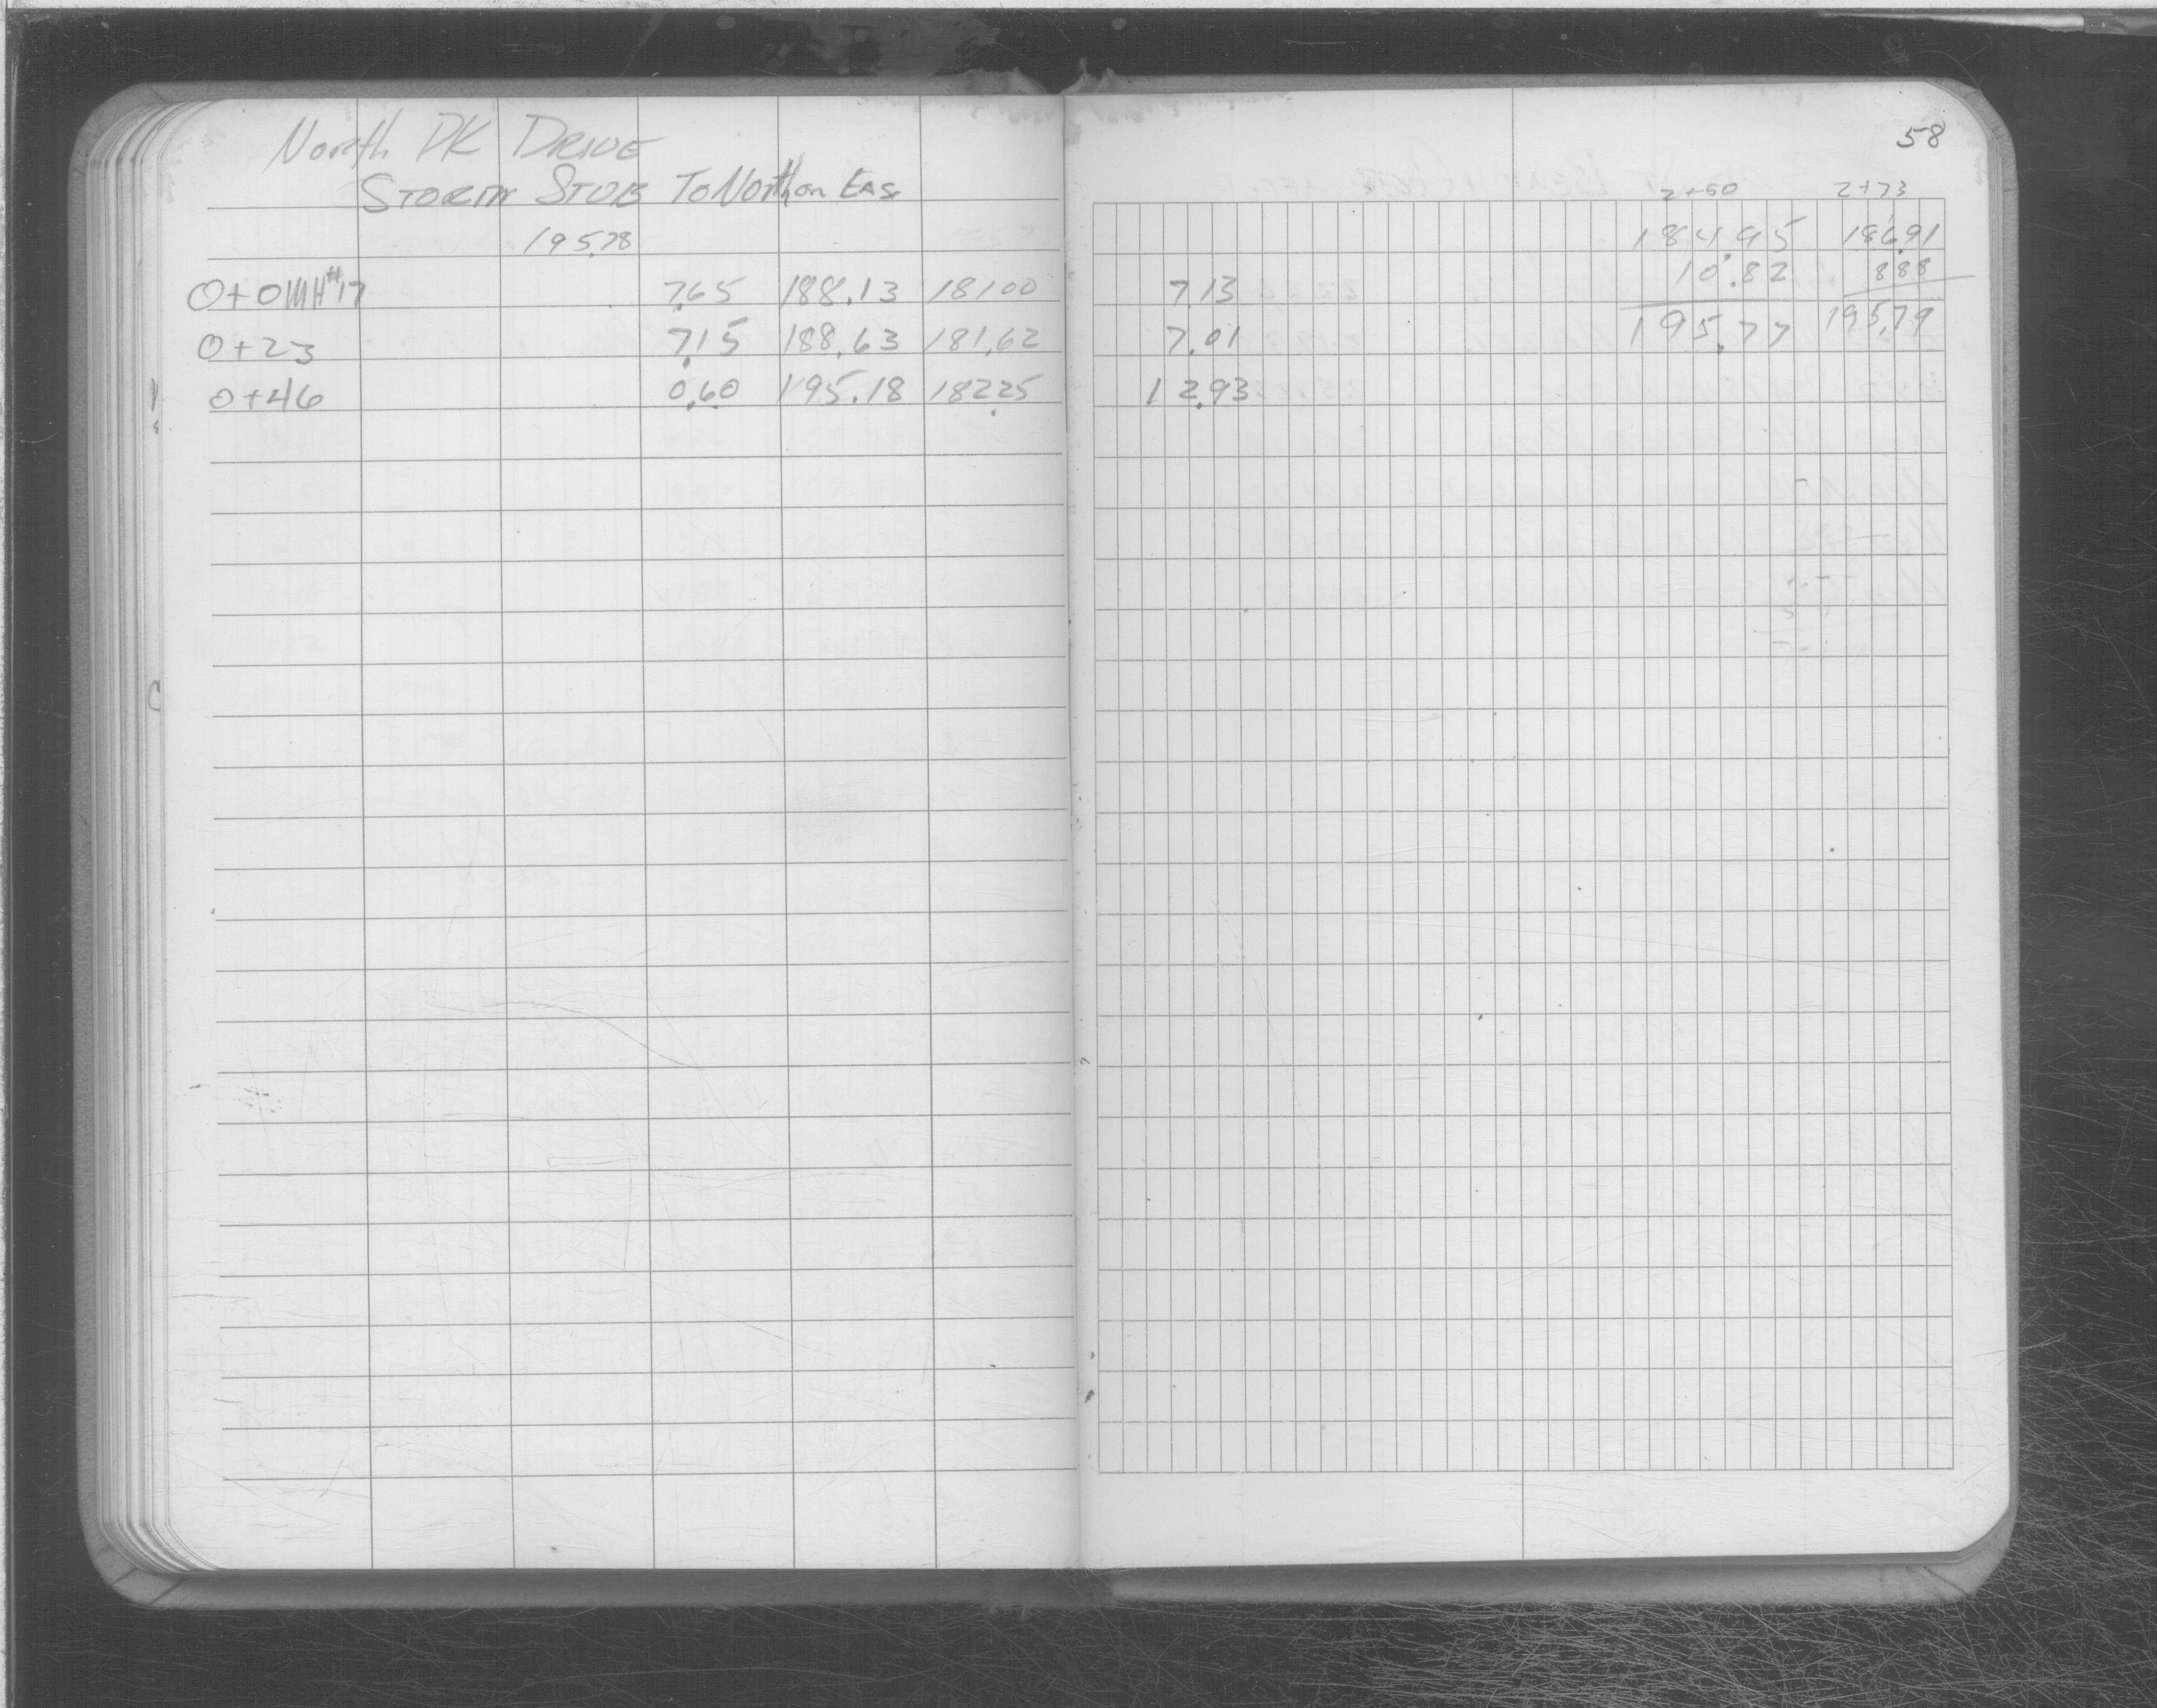 North PK DRIVE
STORM STUB To North on Eas
195.78
0+0 MH #17 7.65 188.13 18100
0+23 7.15 188.63 181.62
0+46 0.60 195.18 182.25
58
2+50 2+73
184.95 186.91
7.13 10.82 8.88
7.01 195.77 195.79
12.93